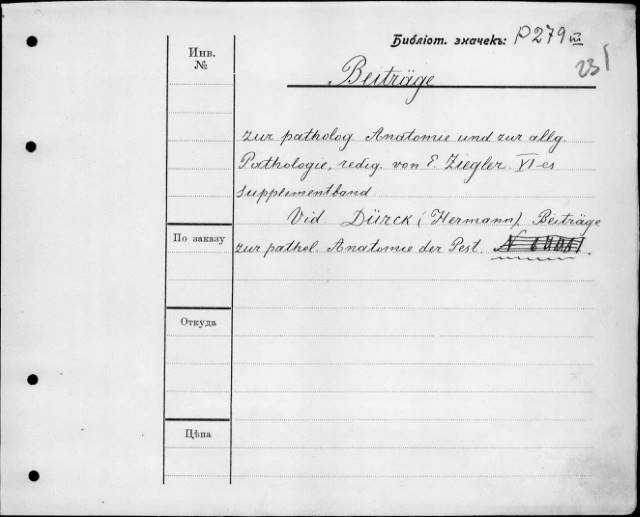 Библіот. значекъ: P279 III
231
Инв.
№
Beiträge
zur patholog Anatomie und zur allg.
Pathologie, redig. von E. Ziegler. VI-es
Supplementband
Vid. Dürck (Hermann). Beiträge
По заказу
zur pathol. Anatomie der Pest.
Откуда
Цѣна